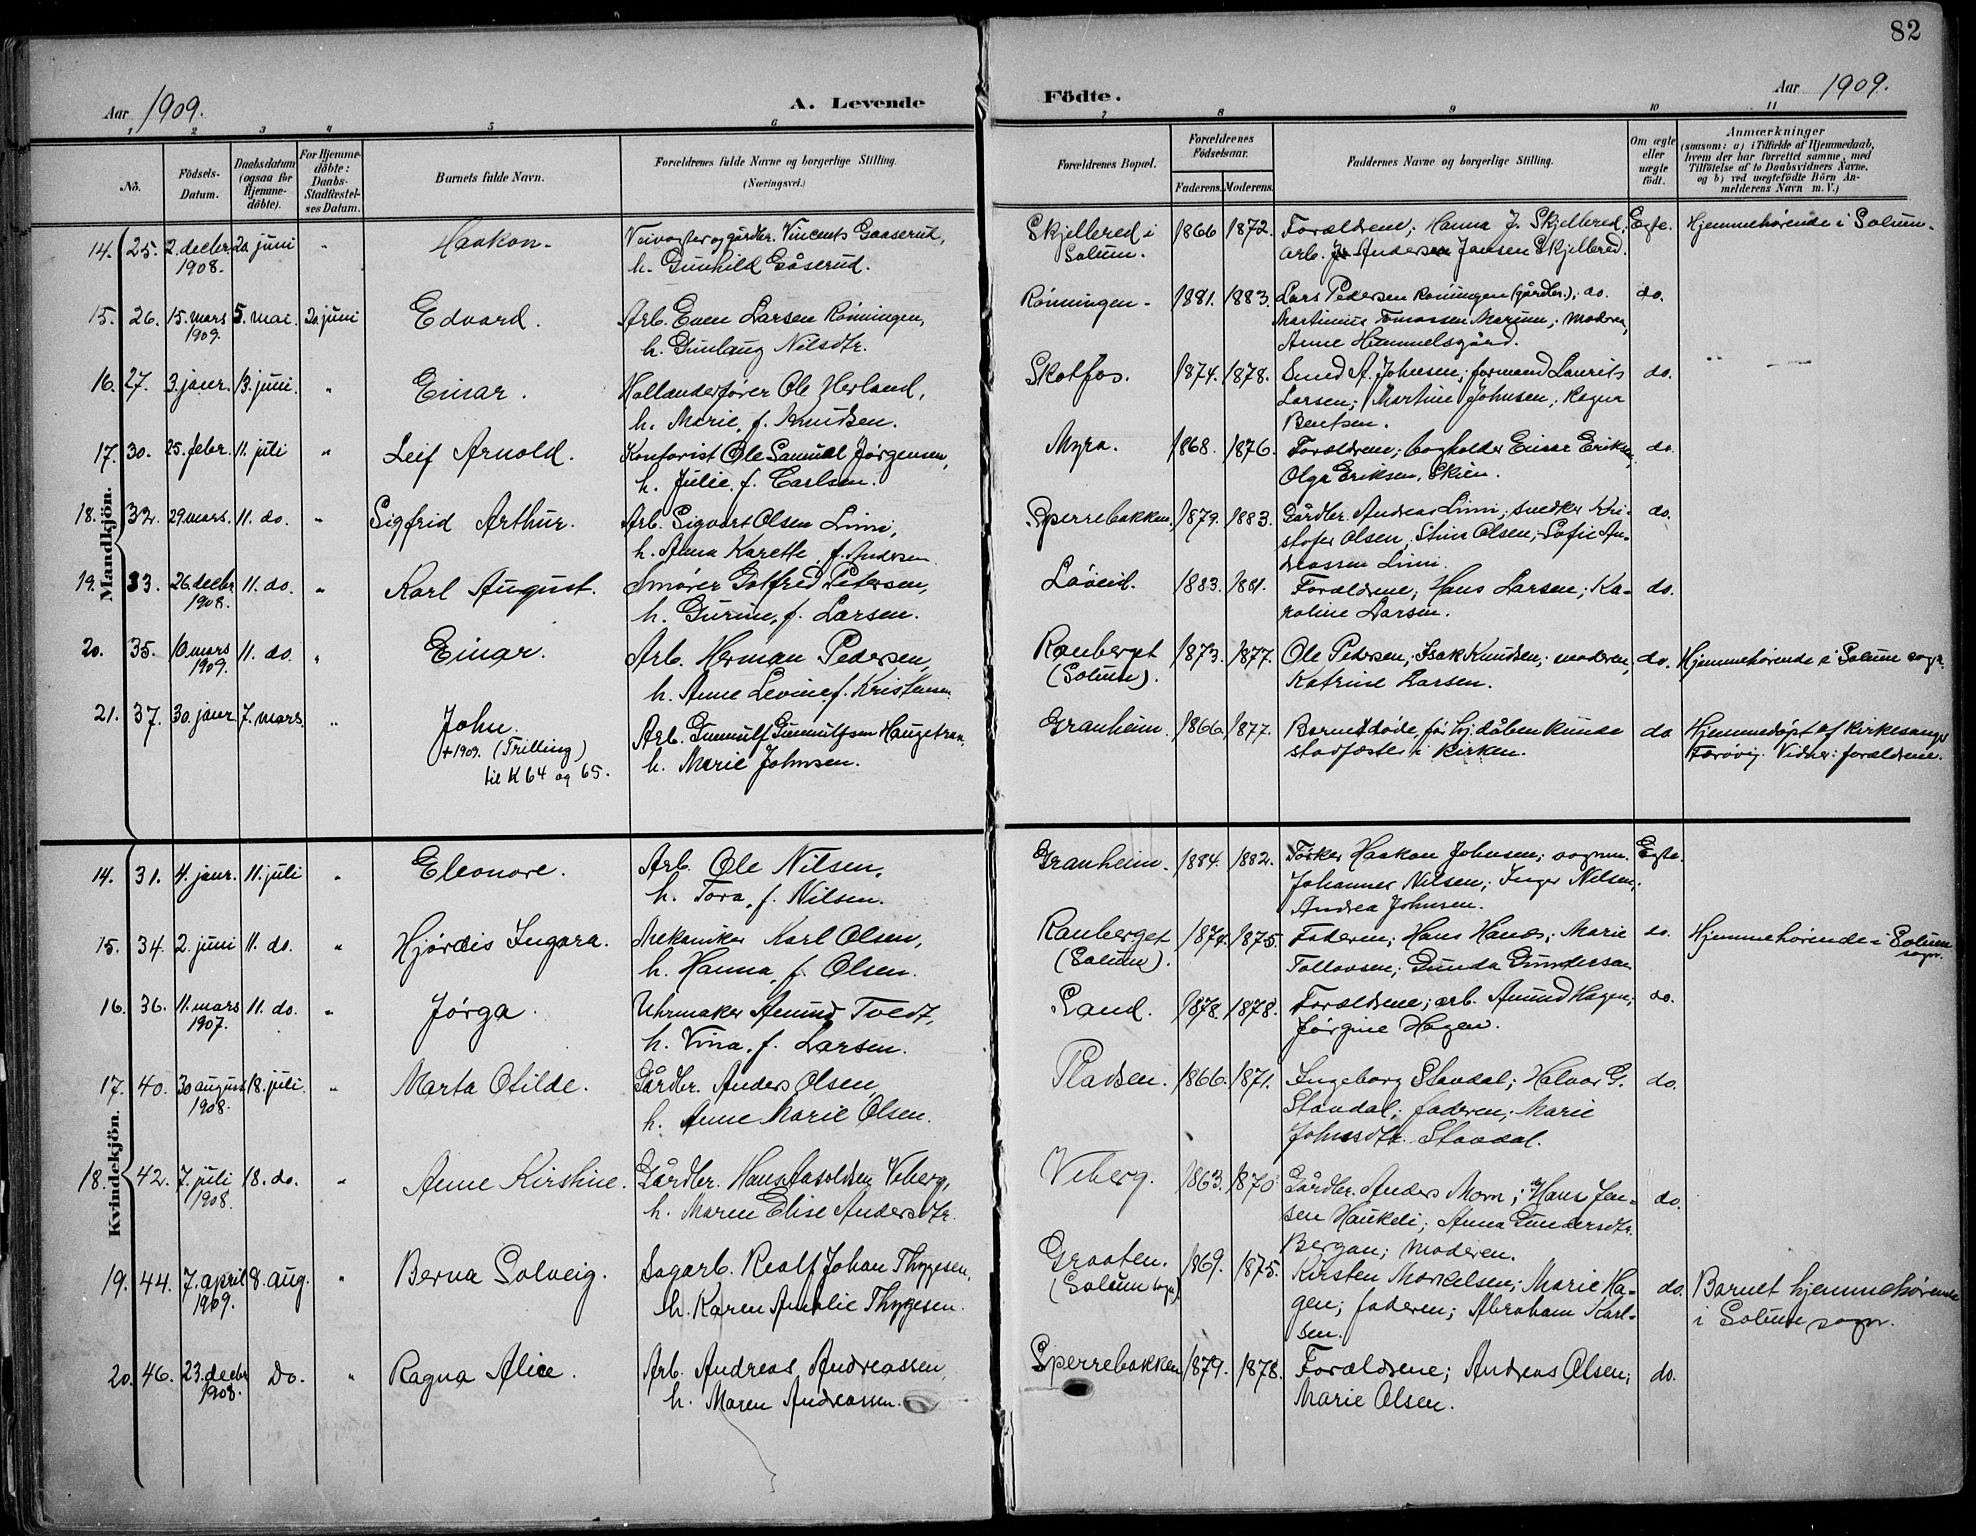 82
Aar 1909.
A. Levende Födte.
Aar 1909.
1 2 3 4 5 6 7 8 9 10 11
No.
Födsels-Datum.
Daabsdatum (ogsaa for Hjemme-döbte).
For Hjemme-döbte: Daabs-Stadfæstelses Datum.
Barnets fulde Navn.
Forældrenes fulde Navne og borgerlige Stilling. (Næringsvei.)
Forældrenes Bopæl.
Forældrenes Födselsaar.
Faderens. Moderens.
Faddernes Navne og borgerlige Stilling.
Om ægte eller uægte födt.
Anmærkninger
(saasom: a) i Tilfælde af Hjemmedaab, hvem der har forrettet samme, med Tilföielse af to Daabsvidners Navne, og b) ved uægtefödte Börn Anmelderens Navn m. V.)
Mandkjön.
14. 25. 2. decbr. 1908. 20. juni " Haakon. Veivogter og gårdbr. Vincents Gaaserud,
h. Gunhild Gåserud. Skjellered i Solum. 1866 1872. Forældrene; Hanna J. Skjellered,
arb. Anders Jansen Skjellered. Egte. Hjemmehørende i Solum.
15. 26. 15. mars 1909. 5. mai. 20. juni Edvard. Arb. Even Larsen Rönningen,
h. Gunlaug Nilsdtr. Rönningen. 1881. 1883. Lars Pedersen Rönningen (gårdbr.); do.
Martinius Tomassen Marum; moderen,
Anne Himmelsgård. do.
16. 27. 3. janr. 13. juni. " Einar. Hollanderfører Ole Herland,
h. Marie, f. Knudsen. Skotfos. 1874. 1878. Smed A. Johnsen; formand Laurits
Larsen; Martine Johnsen; Ragna
Bentsen. do.
17. 30. 25. febr. 11. juli " Leif Arnold. Kontorist Ole Samuel Jørgensen,
h. Julie, f. Carlsen. Myra. 1868. 1876. Forældrene; bogholder Einar Eriksen;
Olga Eriksen, Skien. do.
18. 32. 29. mars. 11. do. " Sigfrid Arthur. Arb. Sigvart Olsen Limi,
h. Anna Karette, f. Andersen Sperrebakken. 1879. 1883. Gårdbr. Andreas Limi; snedker Kri-
stofer Olsen; Stina Olsen; Sofie An-
dreassen Limi. do.
19. 33. 26. decbr 1908. 11. do. " Karl August. Smører Gotfred Petersen,
h. Gurine, f. Larsen. Løveid. 1883. 1881. Forældrene; Hans Larsen; Ka-
roline Larsen. do.
20. 35. 10. mars 1909. 11. do. " Einar. Arb. Herman Pedersen,
h. Anne Levine f. Kristensen Rauberget (Solum). 1873. 1877. Ole Pedersen; Isak Knudsen; moderen;
Katrine Larsen. do. Hjemmehørende i Solum sogn.
21. 37. 30. janr. 7. mars. " John.
+1909. (Trilling)
til K 64 og 65. Arb. Gunnulf Gunnulfsen Haugetraa,
h. Marie Johnsen. Granheim. 1866. 1877. Barnet døde, før hj. dåben kunde
stadfæstes i kirken. do Hjemmedøpt af kirkesanger
Vidner: forældrene.
Kvindekjön.
14. 31. 4. janr. 11. juli " Eleonore. Arb. Ole Nilsen,
h. Tora, f. Nilsen. Granheim. 1884. 1882. Haakon Johnsen; vognm.
Johannes Nilsen; Inger Nilsen;
Andrea Johnsen. Egte.
15. 34. 2. juni 11. do. " Hjørdis Ingara. Mekaniker Karl Olsen,
h. Hanna, f. Olsen. Rauberget (Solum). 1874. 1875. Faderen; Hans Hansen; Marie
Tollovsen; Gunda Gundersen do. Hjemmehørende i Solum sogn.
16. 36. 11. mars 1907. 11. do. " Jørga. Uhrmaker Amund Tvedt,
h. Vina, f. Larsen. Sand. 1878. 1878. Forældrene; arb. Amund Hagen;
Jørgine Hagen. do.
17. 40. 30 august 1908. 18. juli. " Marta Otilde. Gårdbr. Anders Olsen,
h. Anne Marie Olsen. Pladsen. 1866. 1871. Ingeborg Stavdal; Halvor G.
Stavdal; faderen; Marie
Johnsdtr. Stavdal. do.
18. 42. 7. juli 1908. 18. do. " Anne Kirstine. Gårdbr. Hans Aasoldsen Veberg,
h. Maren Elise Andersdtr. Veberg. 1863. 1870 Gårdbr. Anders Moen; Hans Jen-
sen Haukeli; Anna Gundersdtr.
Bergan; moderen. do.
19. 44. 7. april 1909. 8. aug. " Berna Solveig. Sagarb. Realf Johan Thygesen,
h. Karen Amalie Thygesen. Graaten. (Solum sogn) 1869. 1875. Kirsten Markelsen; Marie Ha-
gen; faderen; Abraham Karl-
sen. do. Barnet hjemmehørende
i Solum sogn.
20. 46. 23. decbr 1908. Do. " Ragna Alice. Arb. Andreas Andreassen,
h. Maren Andreassen. Sperrebakken 1879. 1878. Forældrene; Andreas Olsen;
Marie Olsen. do.